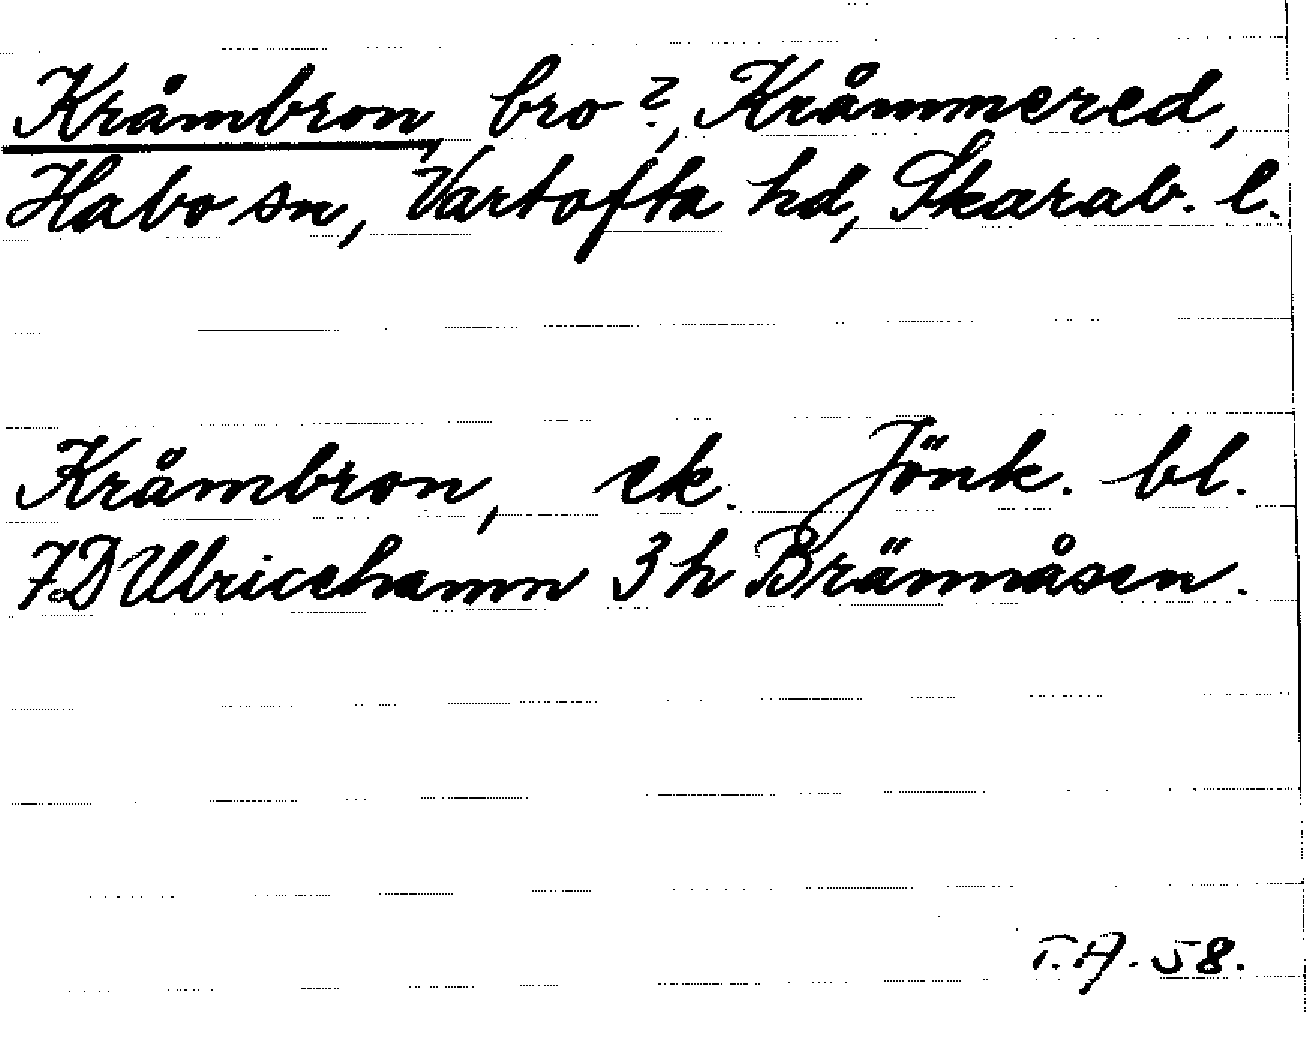 Kråmbron, bro?, Kråmmered,
Habo sn, Vartofta hd, Skarab. l.
Kråmbron, ek. Jönk. bl.
7D Ulricehamn 3h Brännåsen.
T.A. 58.